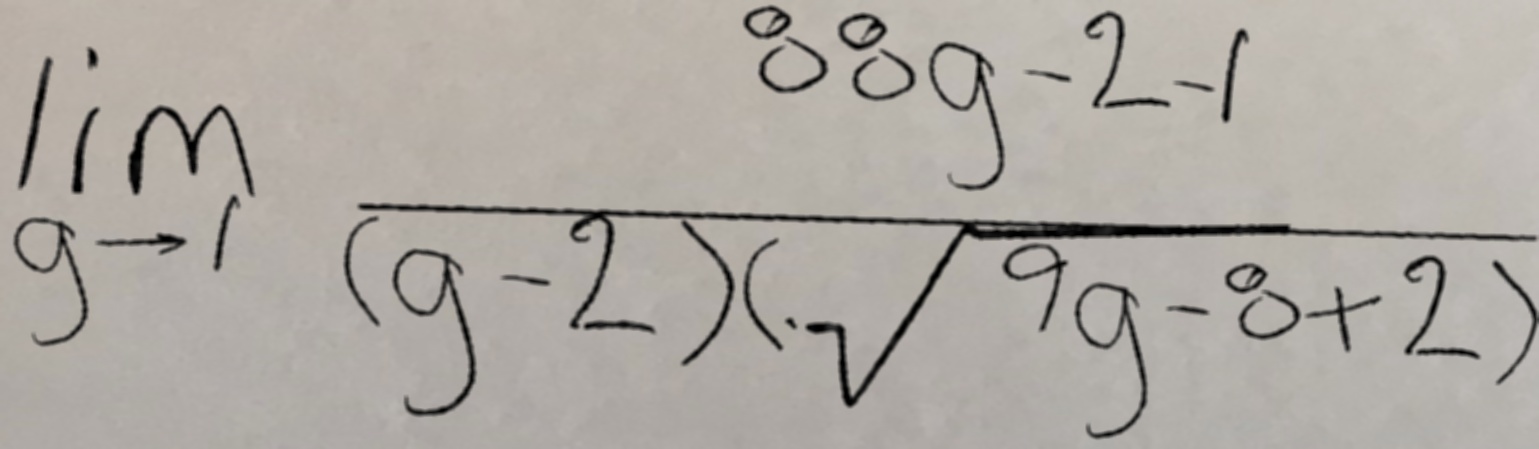 \lim_{g \to 1} \frac{88g-2-1}{(g-2)(\sqrt{9g-8}+2)}